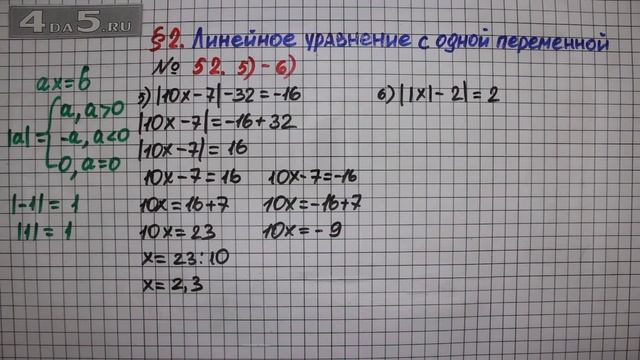 4DA5.RU
§2. Линейное уравнение с одной переменной
№ 52. 5)-6)
ax=b
|a|= a, a>0
-a, a<0
0, a=0
|-1|=1
|1|=1
5) |10x-7|-32=-16
|10x-7|=-16+32
|10x-7|=16
10x-7=16 10x-7=-16
10x=16+7 10x=-16+7
10x=23 10x=-9
x=23:10
x=2,3
6) ||x|-2|=2